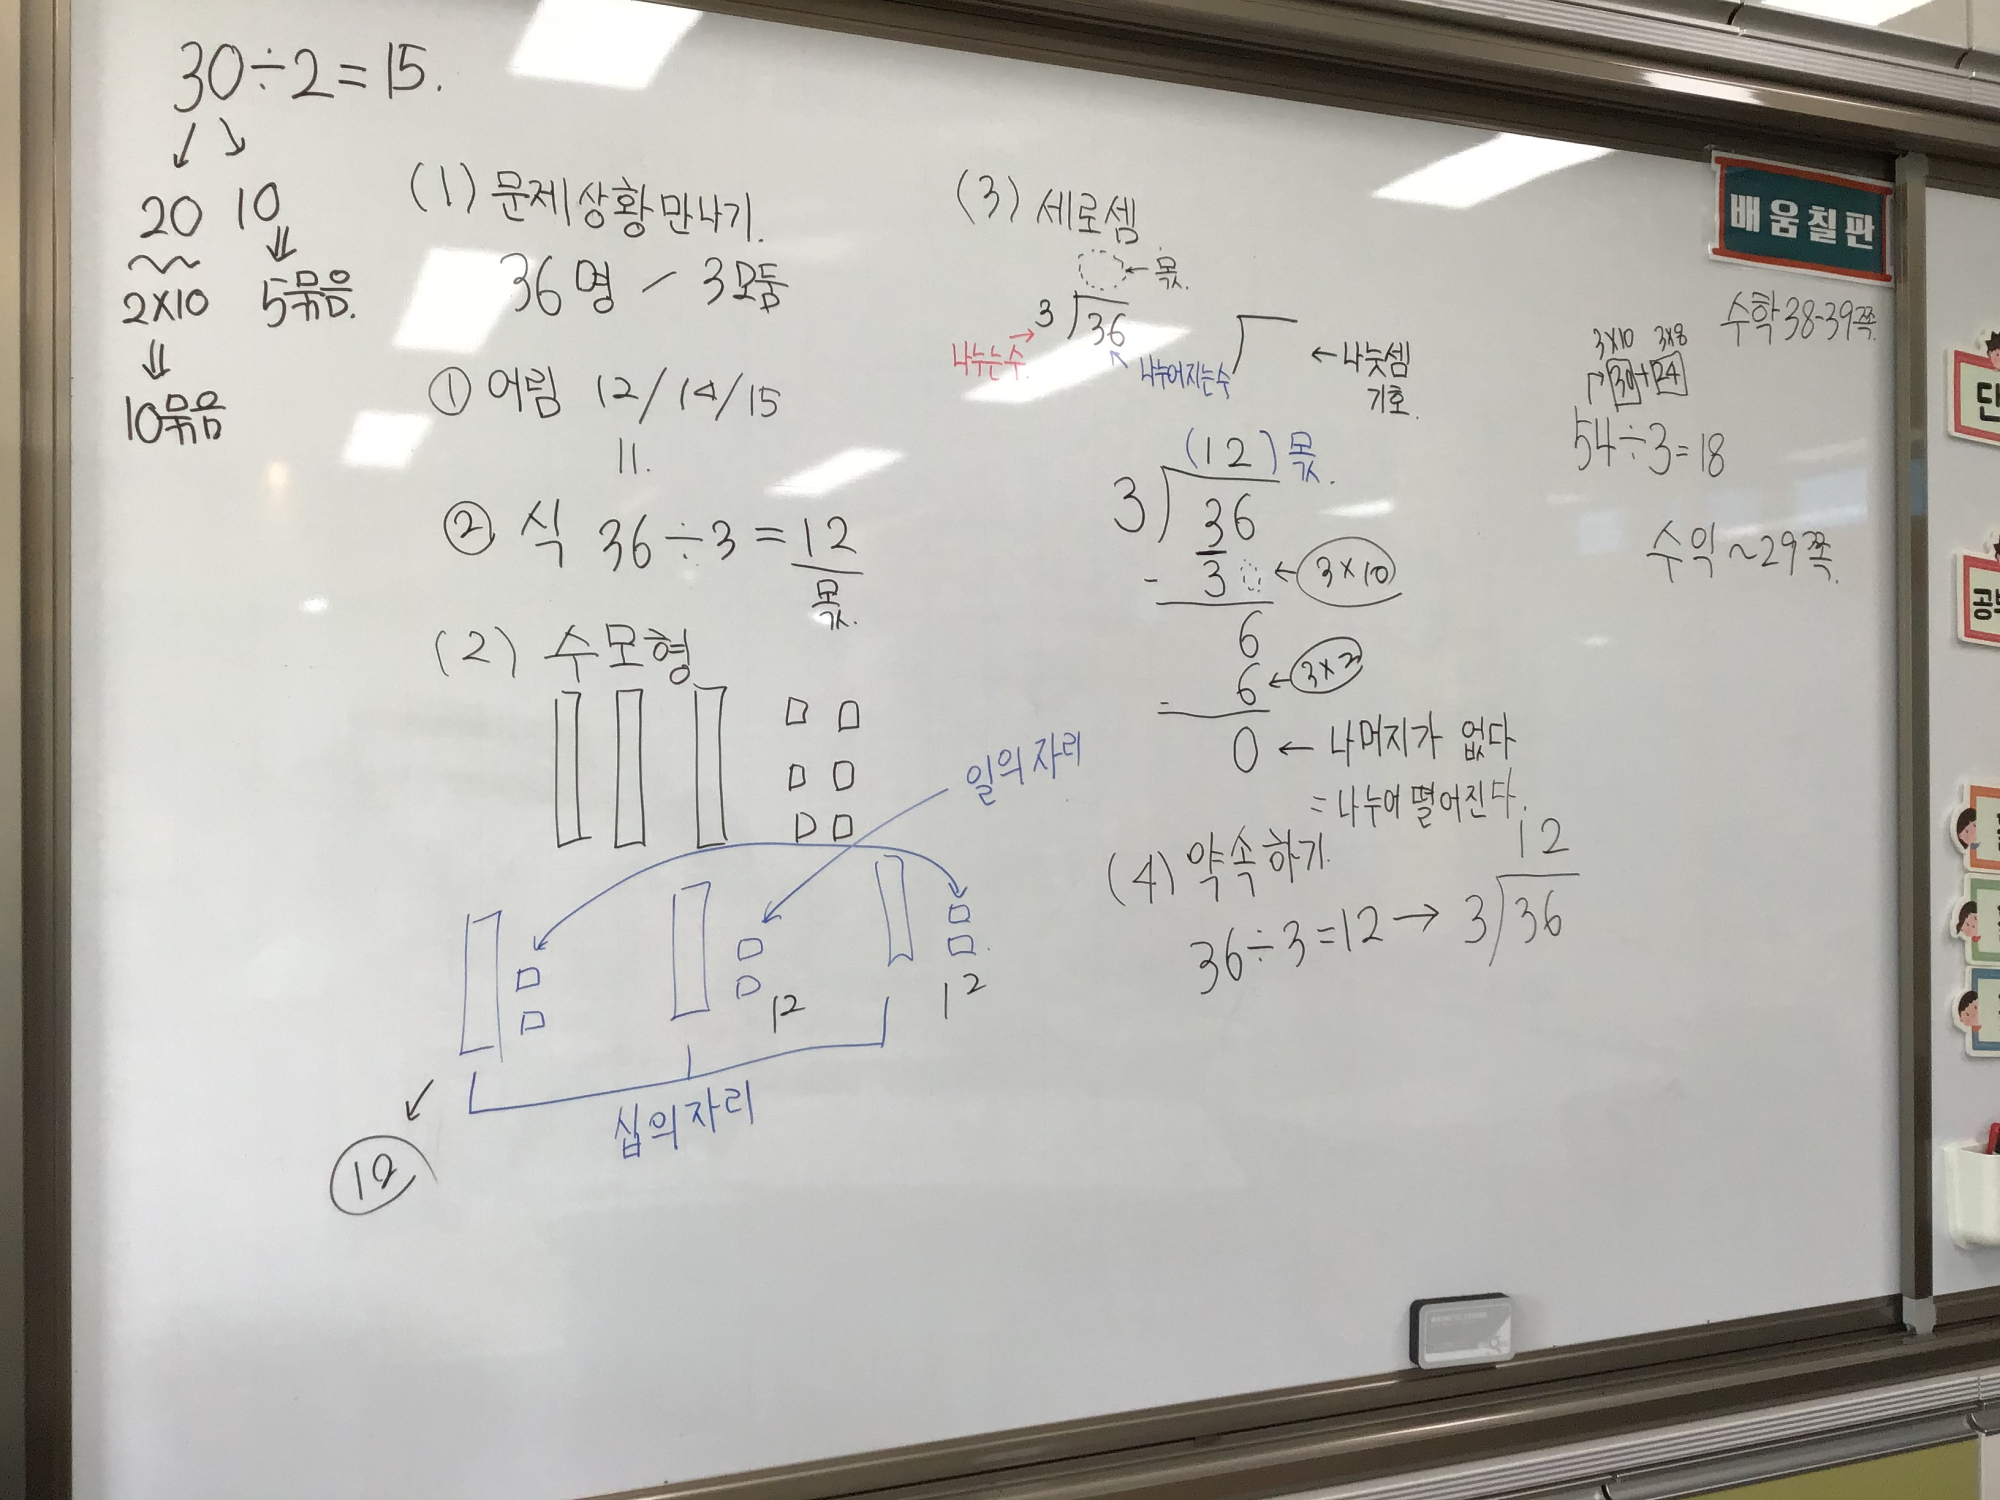 30÷2=15.
20 10
2×10 5묶음.
10묶음
(1) 문제상황만나기.
36명 / 3모둠
① 어림 12/14/15
11.
② 식 36÷3=12
몫.
(2) 수모형
일의자리
12 12
십의자리
12
(3) 세로셈
몫.
3 36
나누는수
나누어지는수
←나눗셈
기호.
(12)몫.
3 36
- 3 ←3×10
6
- 6 ←3×2
0 ← 나머지가 없다
=나누어떨어진다.
(4) 약속하기
12
36÷3=12→ 3 36
배움칠판
수학38-39쪽
3×10 3×8
30+24
54÷3=18
수익~29쪽
단
공부